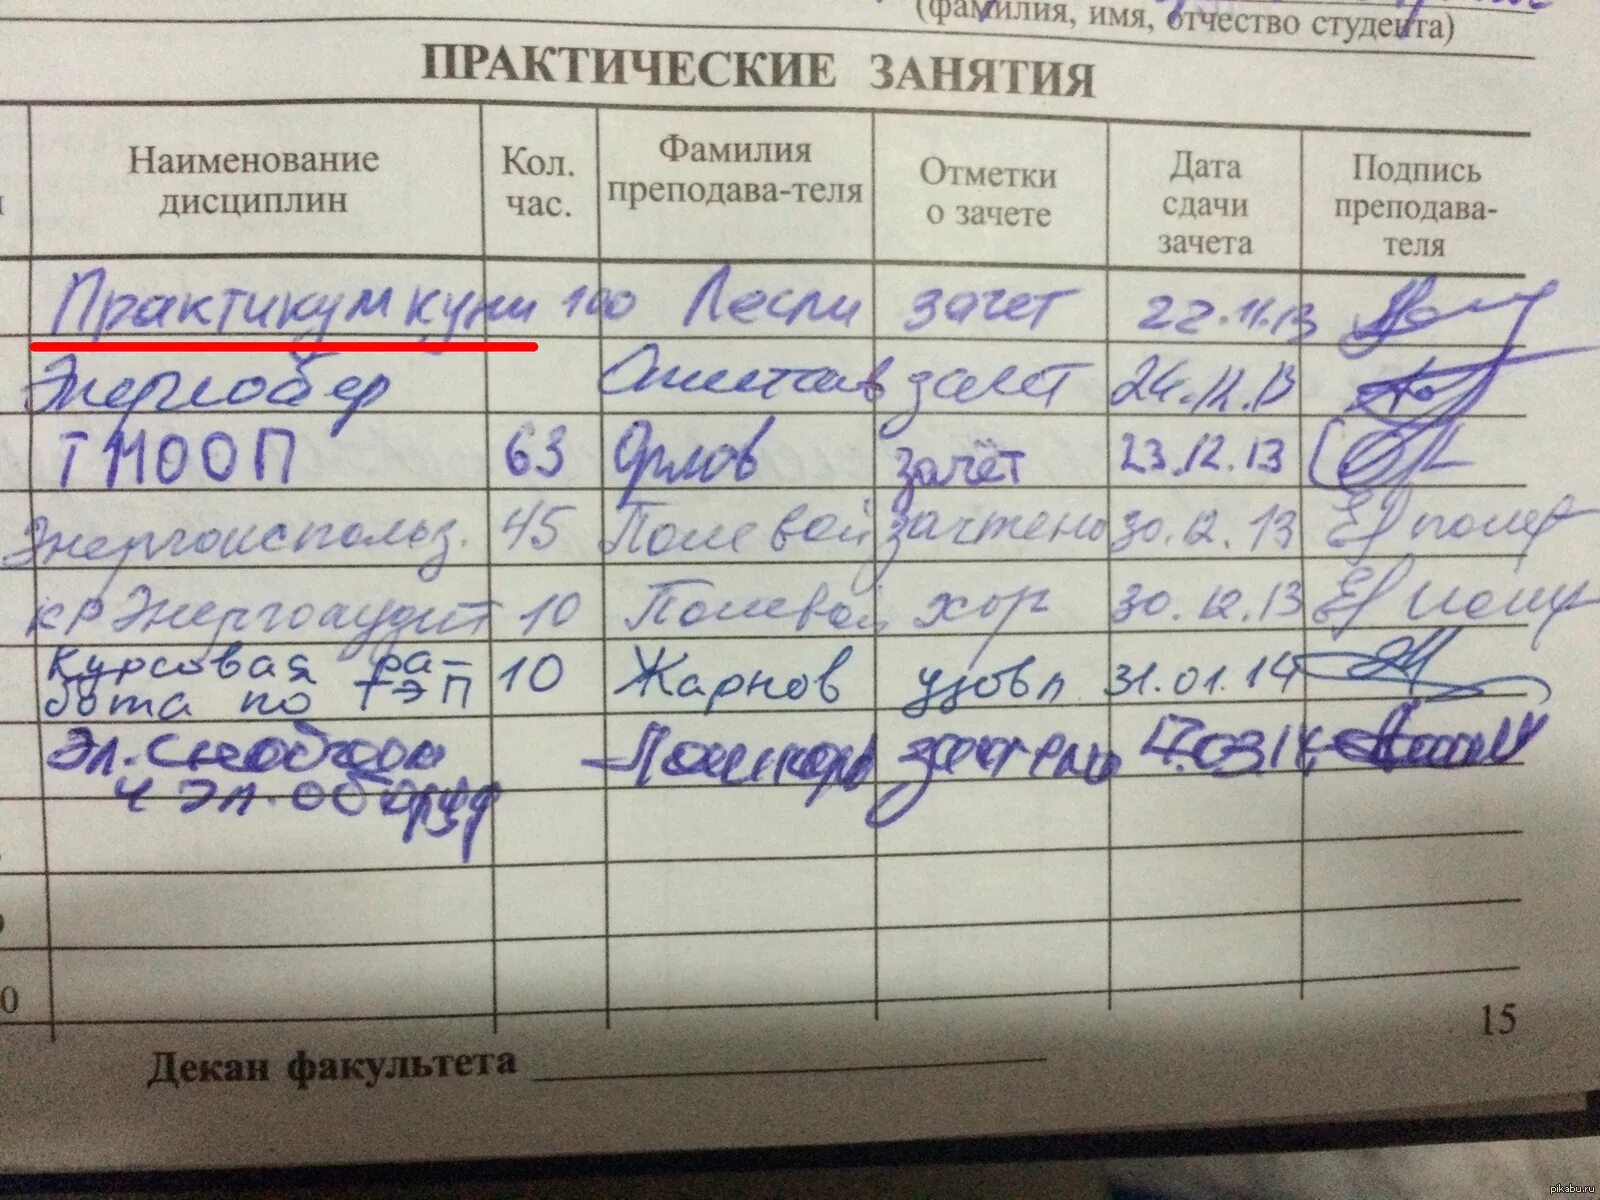 (фамилия, имя, отчество студента)
ПРАКТИЧЕСКИЕ ЗАНЯТИЯ
Наименование дисциплин Кол. час. Фамилия преподава-теля Отметки о зачете Дата сдачи зачета Подпись преподава-теля
Практикум куни 100 Лесли зачет 22.11.13
Энергосбер зачет 24.12.13
ТМООП 63 Орлов зачёт 23.12.13
Энергоиспольз. 45 Полевой зачтено 30.12.13
КР Энергоаудит 10 Полевой хор 30.12.13
Курсовая ра-
бота по ТЭП 10 Жарнов удовл 31.01.14
Эл. Снабжен 17.03.14
и эл. оборуд
0
15
Декан факультета
pikabu.ru